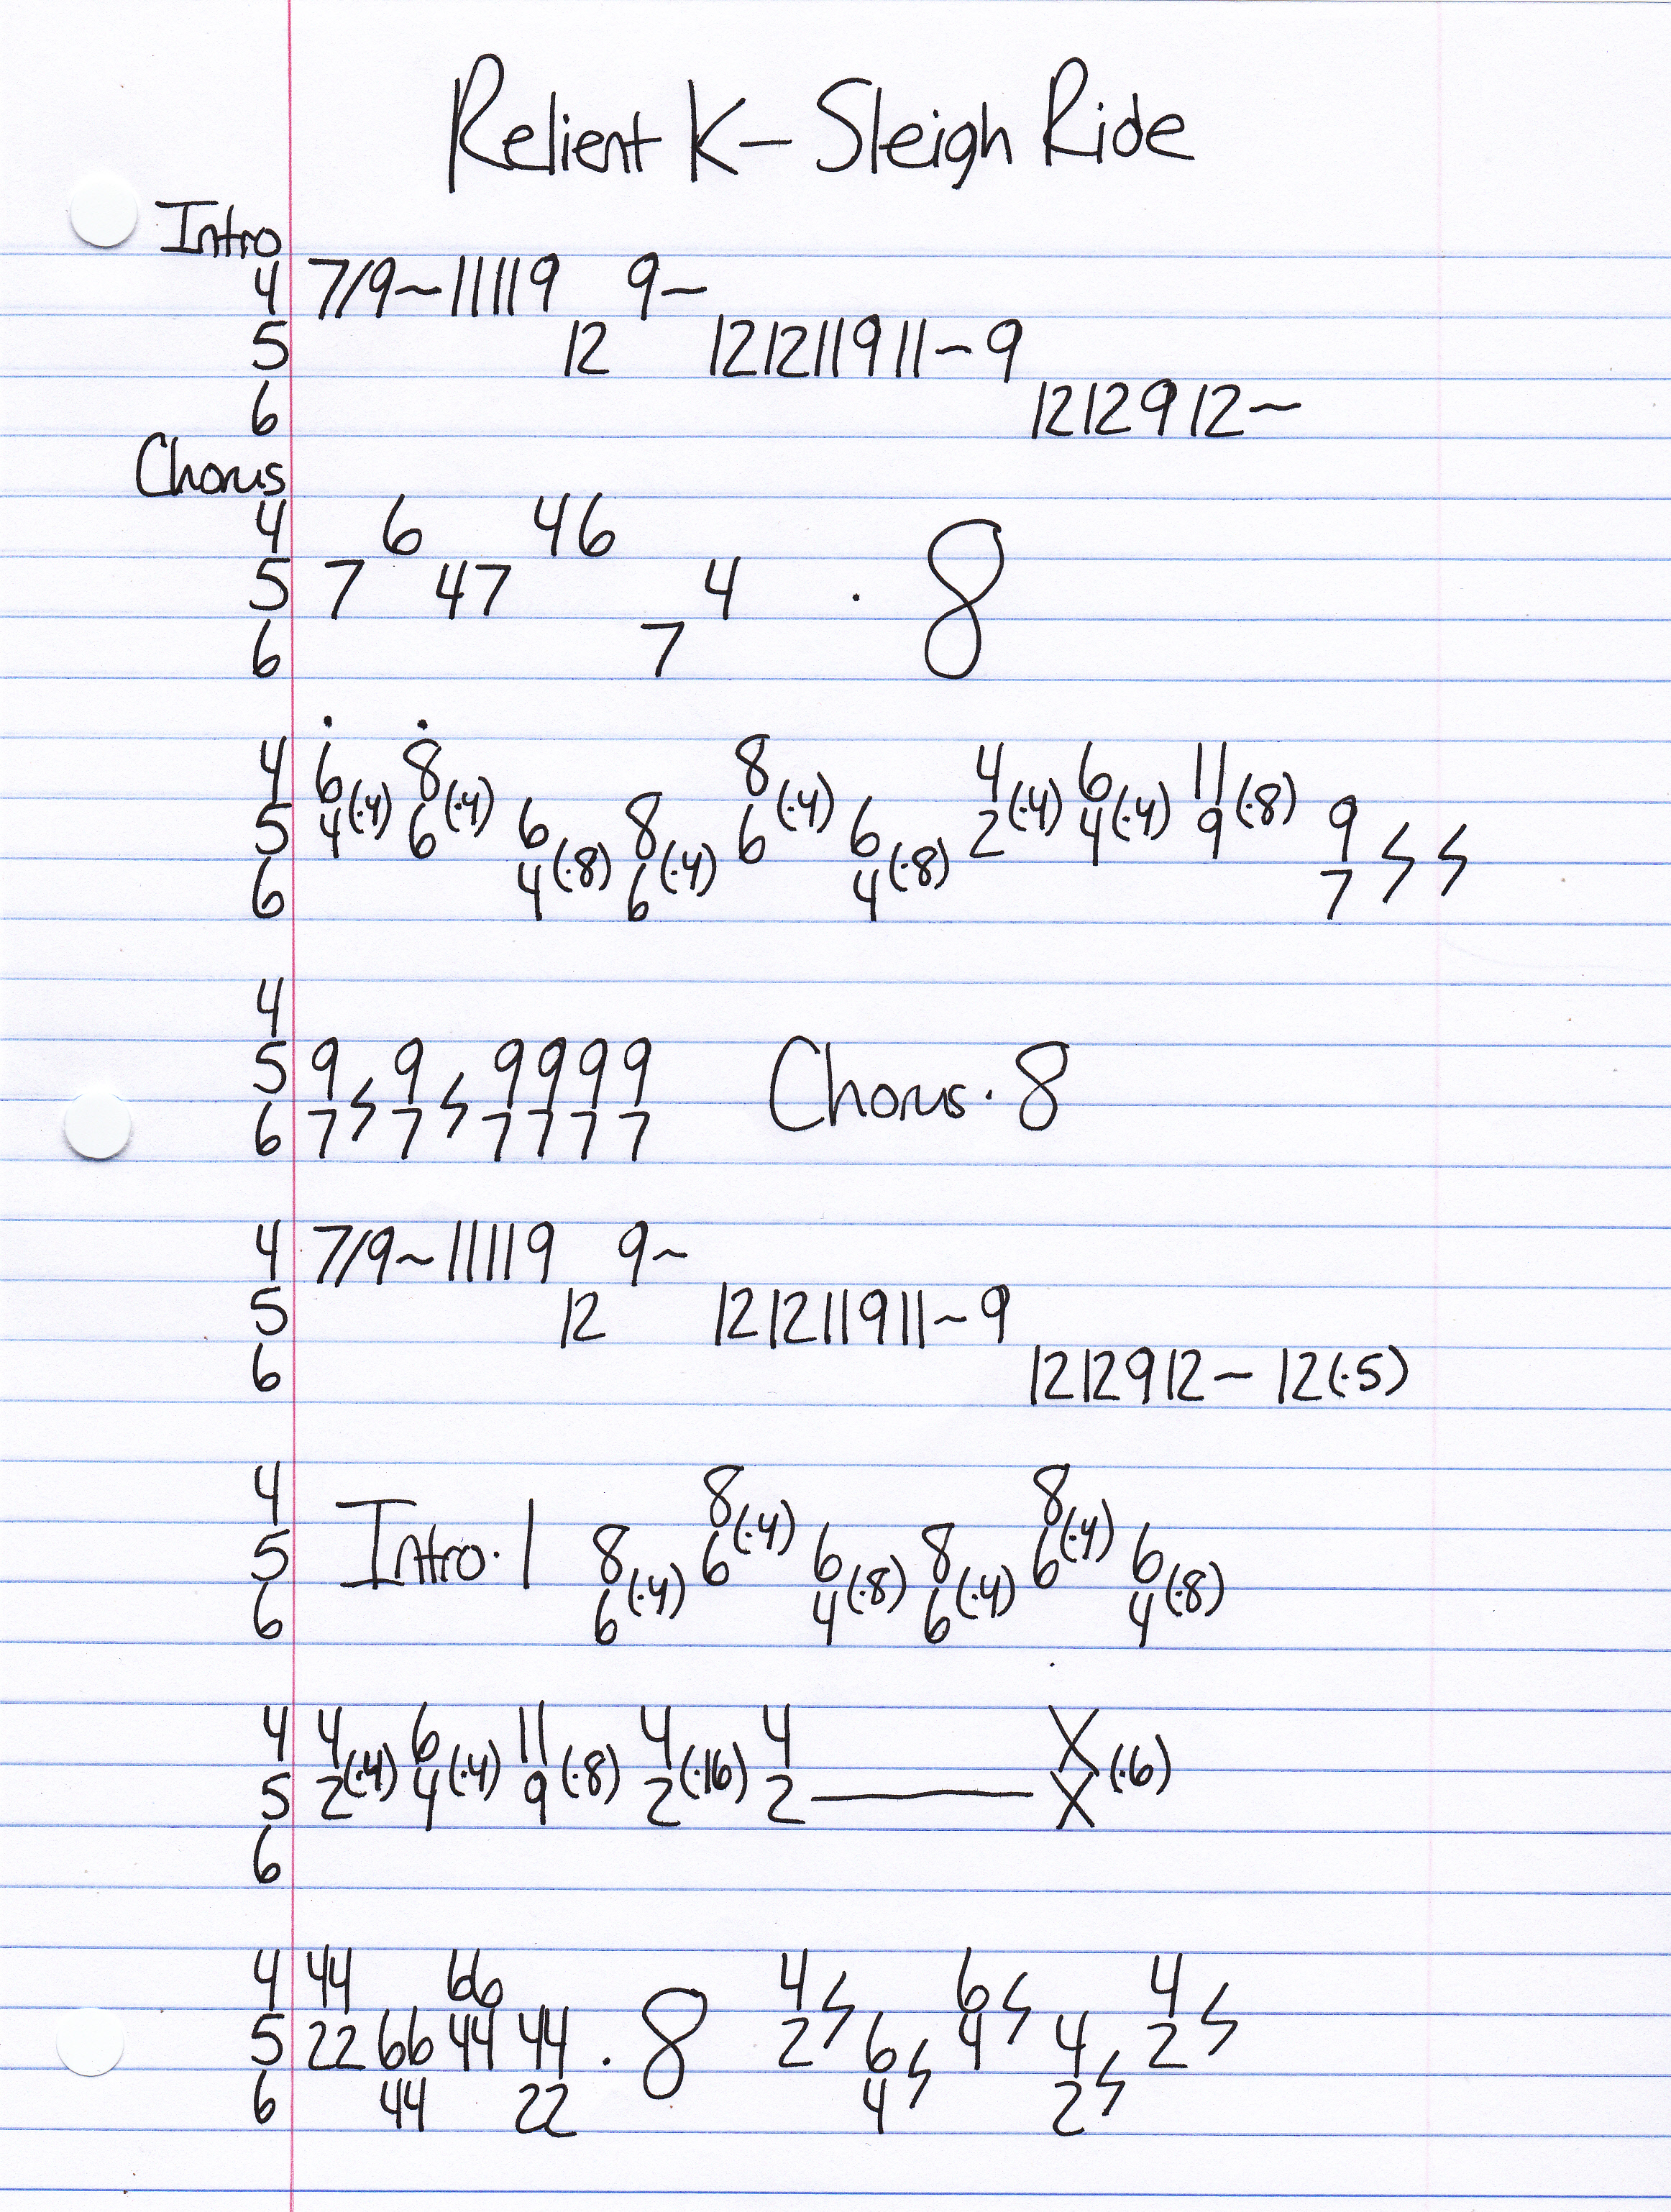 Relient K - Sleigh Ride
Intro
4 7/9~ 11 11 9 9~
5 12 12 12 11 9 11 ~ 9
6 12 12 9 12 ~
Chorus
4 6 4 6
5 7 4 7 4 · 8
6 7
4 6 (·4) 8 (·4) 8 (·4) 4 (·4) 6 (·4) 11 (·8)
5 4 6 6 8 6 6 2 4 9 9
6 4 (·8) 6 (·4) 4 (·8) 7
4
5 9 9 9 9 9 9 Chorus · 8
6 7 7 7 7 7 7
4 7/9~ 11 11 9 9~
5 12 12 12 11 9 11 ~ 9
6 12 12 9 12 ~ 12 (·5)
4 8 (·4) 8 (·4)
5 Intro · 1 8 6 6 8 6 6
6 6 (·4) 4 (·8) 6 (·4) 4 (·8)
4 4 (·4) 6 (·4) 11 (·8) 4 (·16) 4 X (·6)
5 2 4 9 2 2 X
6
4 44 66 4 6 4
5 22 66 44 44 · 8 2 6 4 4 2
6 44 22 4 2